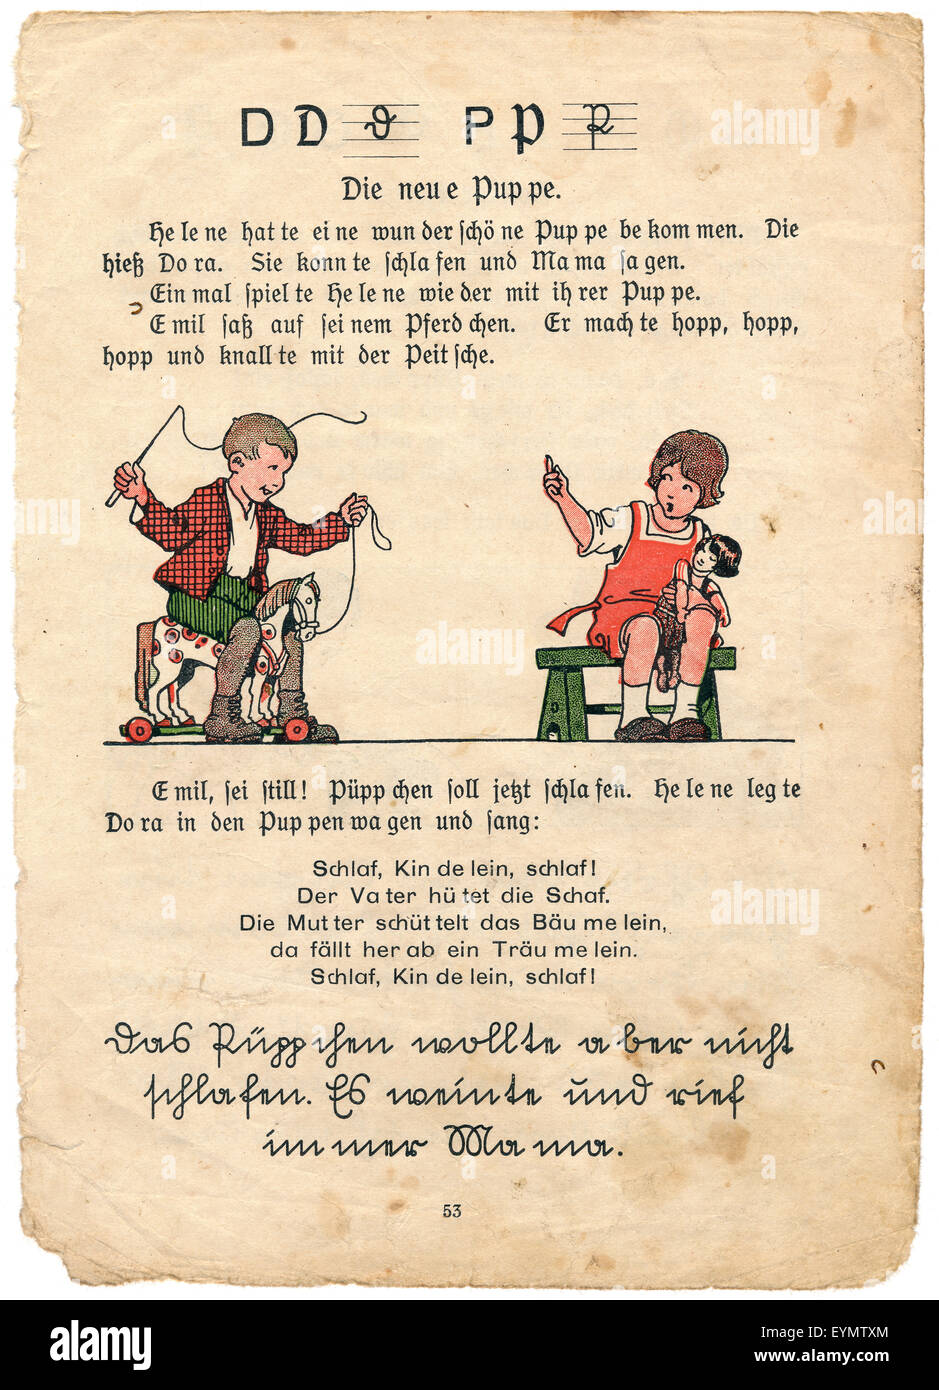 D D D P P P
Die neu e Pup pe.
He le ne hat te ei ne wun der schö ne Pup pe be kom men. Die
hieß Do ra. Sie konn te schla fen und Ma ma sa gen.
Ein mal spiel te He le ne wie der mit ih rer Pup pe.
E mil saß auf sei nem Pferd chen. Er mach te hopp, hopp,
hopp und knall te mit der Peit sche.
E mil, sei still! Püpp chen soll jetzt schla fen. He le ne leg te
Do ra in den Pup pen wa gen und sang:
Schlaf, Kin de lein, schlaf!
Der Va ter hü tet die Schaf.
Die Mut ter schüt telt das Bäu me lein,
da fällt her ab ein Träu me lein.
Schlaf, Kin de lein, schlaf!
Das Püpp chen wollte a ber nicht
schlafen. Es weinte und rief
im mer Ma ma.
53
alamy
alamy
alamy
alamy
alamy
alamy
alamy
alamy
Image ID: EYMTXM
www.alamy.com